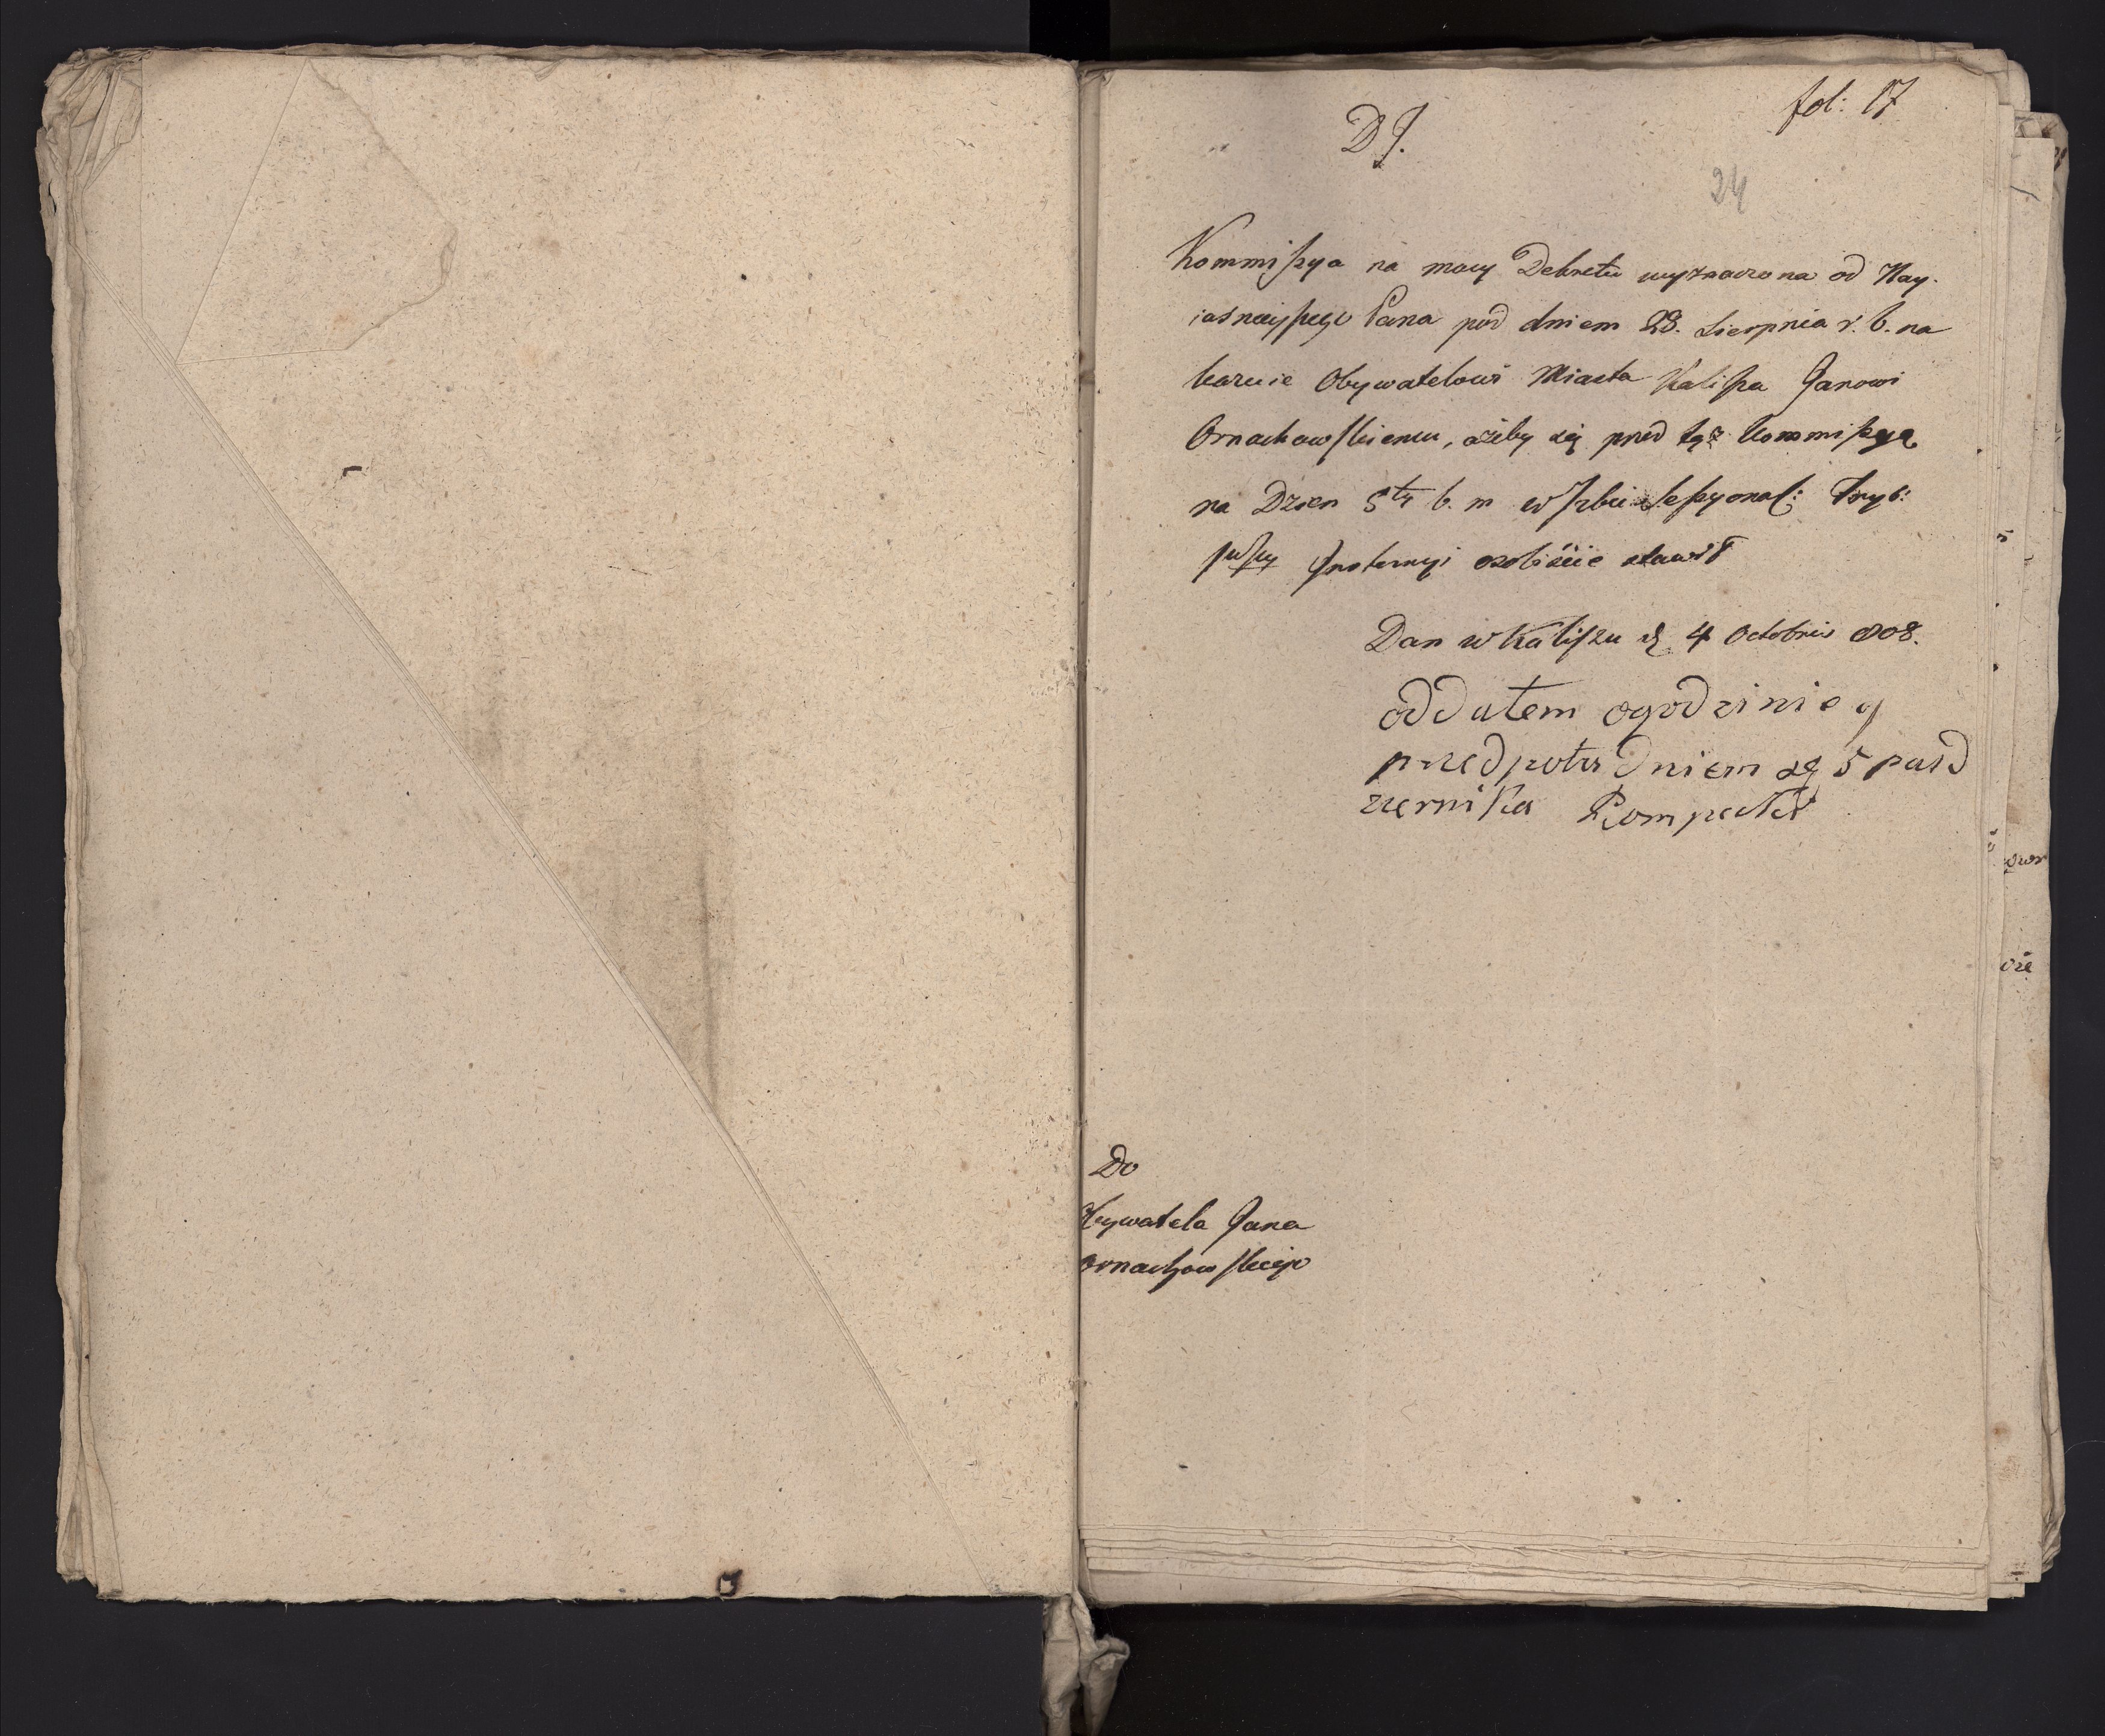 fol: 17
DJ.
24
Kommissya na mocy Dekretu wyznaczona od Nay-
iasnieyszego Pana pod dniem 28. Sierpnia r. b. na
kazuie Obywatelowi Miasta Kalisza Janowi
Ornachowskiemu, ażeby się przed tęż Kommissyą
na Dzien 5ty b. m w Izbie Sessyonal: Tryb:
osobiście stawił
Dan w Kaliszu d. 4 Octobris 808.
oddałem ogodzinie 9
przedpołudniem dg 5 pazd
ziernika
Do
Obywatela Jana
Ornachowskiego